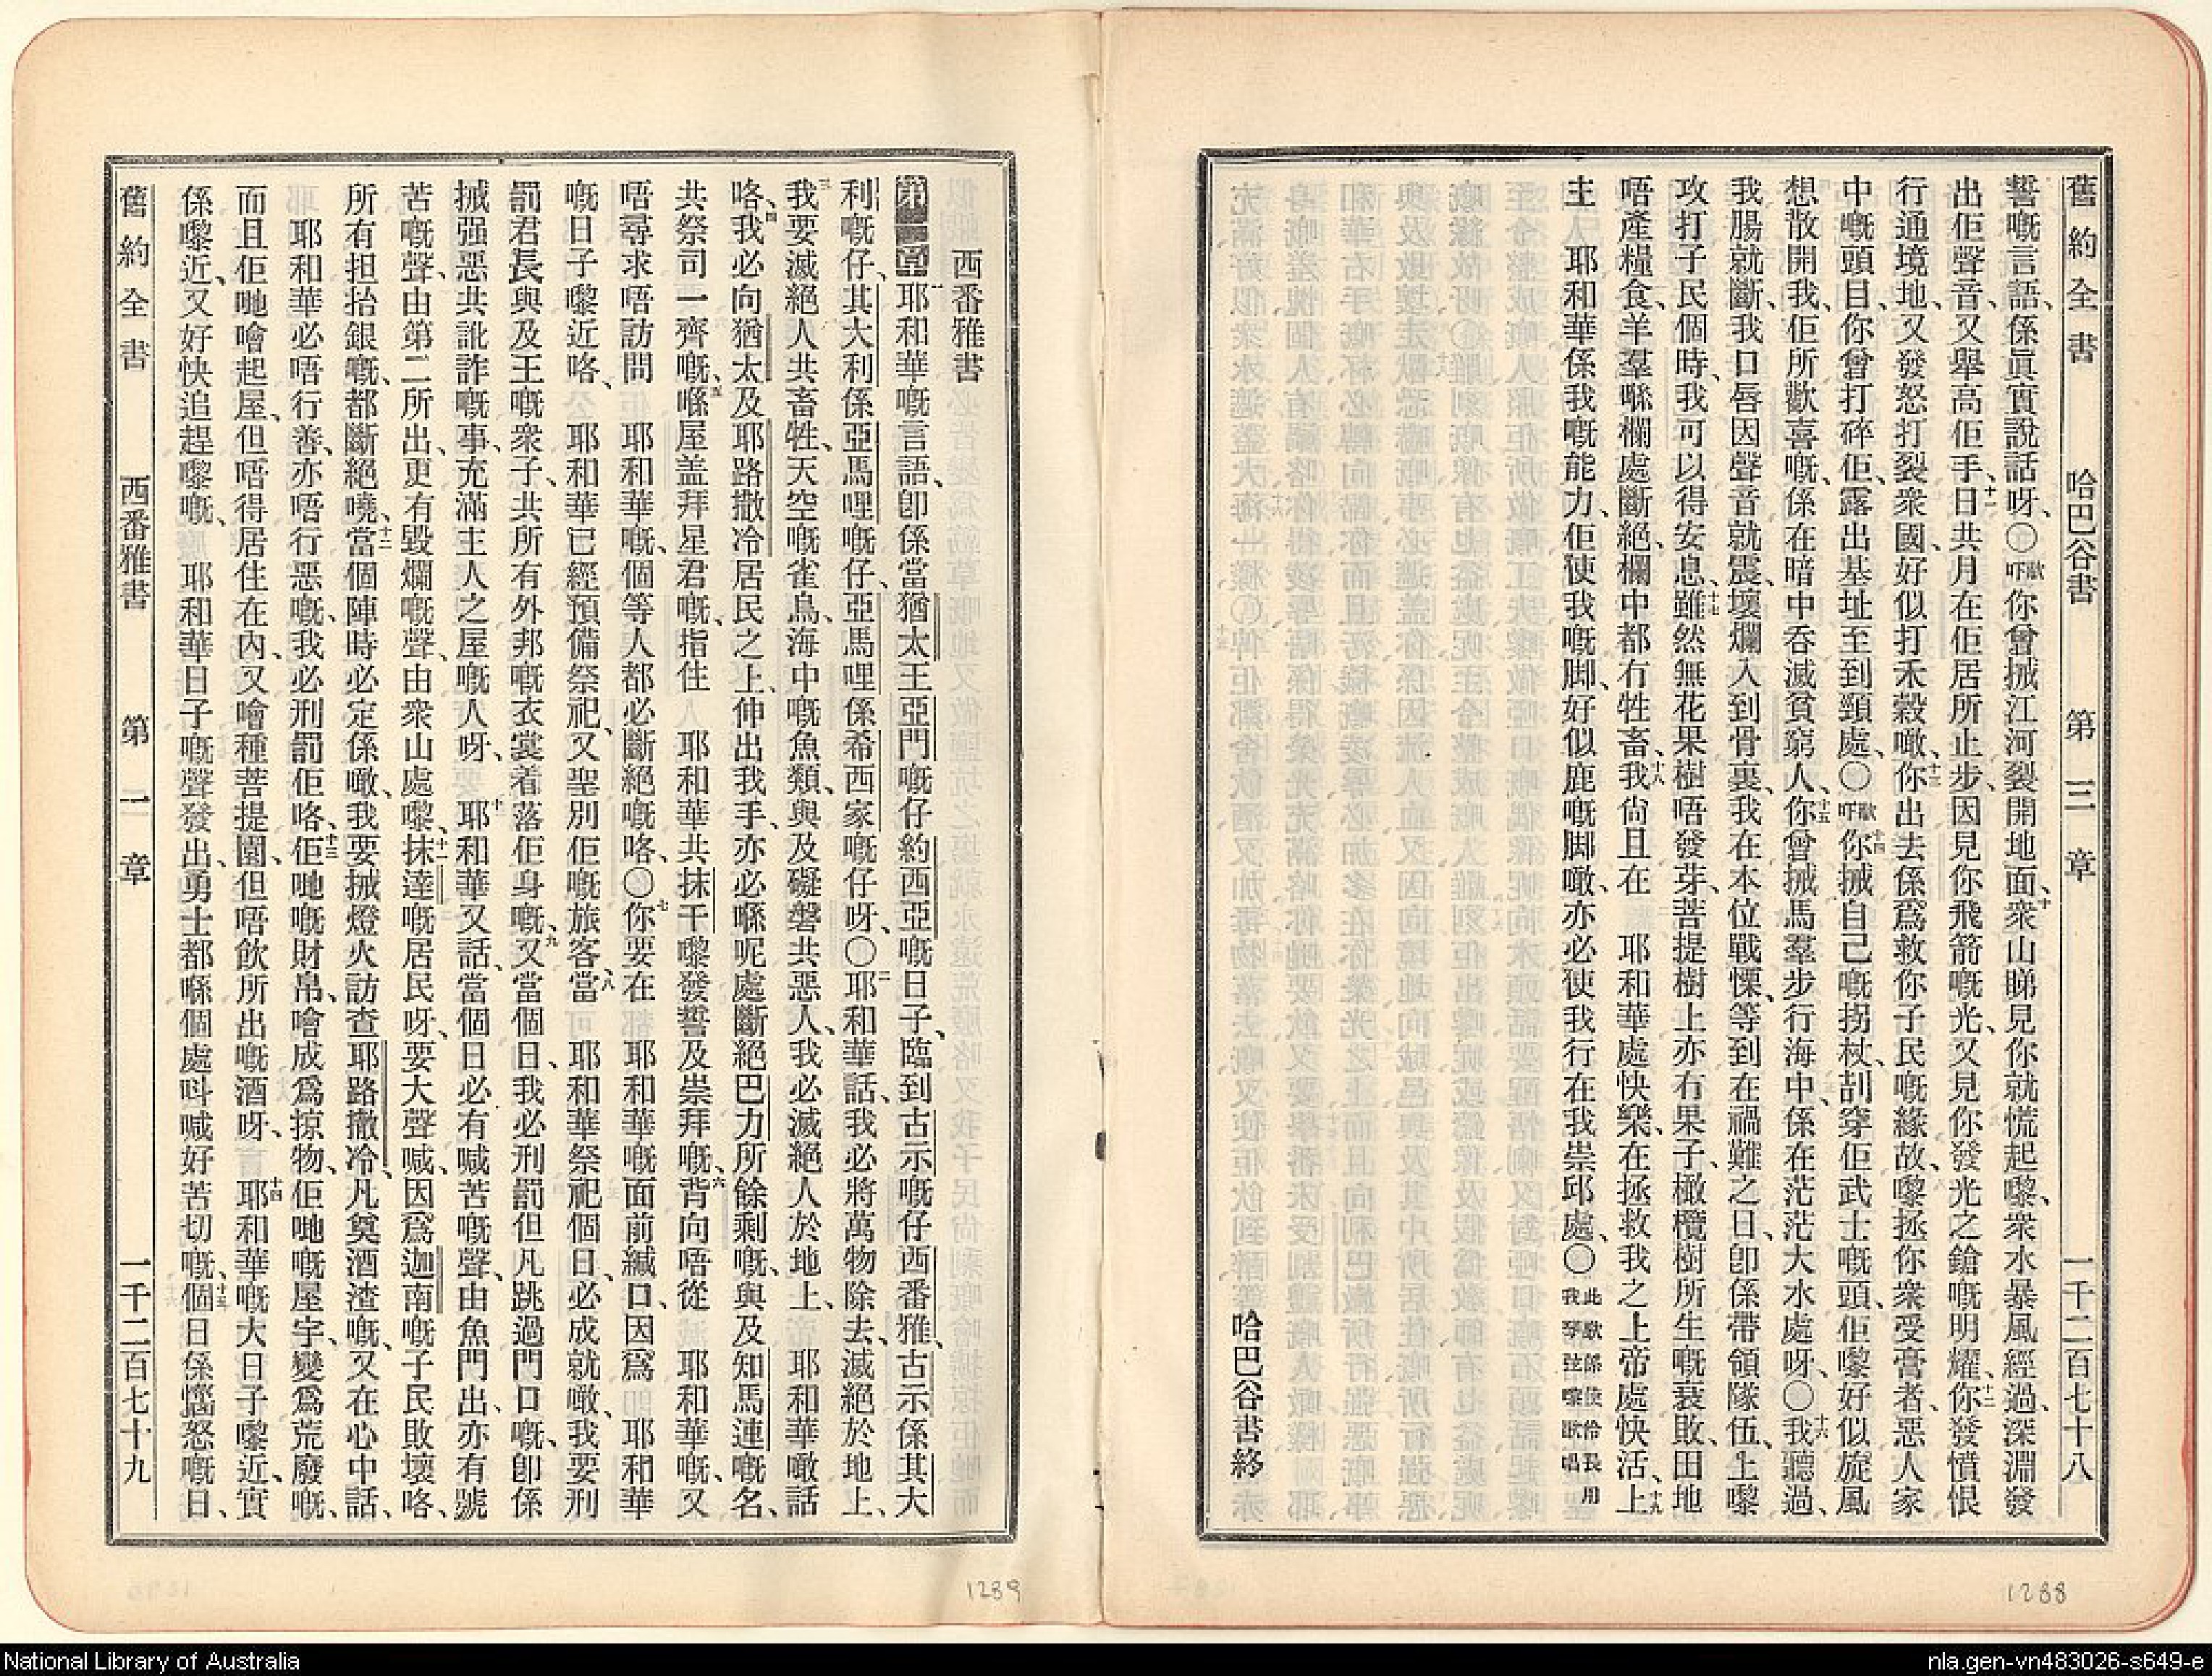 舊約全書 哈巴谷書 第三章 一千二百七十八
誓嘅言語、係眞實說話呀、〇歇吓你曾搣江河裂開地面、十衆山睇見你就慌起嚟、衆水暴風經過、深淵發
出佢聲音、又舉高佢手、十一日共月在佢居所止步、因見你飛箭嘅光、又見你發光之鎗嘅明耀、十二你發憤恨
行通境地、又發怒打裂衆國、好似打禾穀噉、十三你出去係爲救你子民嘅緣故、嚟拯你衆受膏者、惡人家
中嘅頭目、你曾打碎佢、露出基址至到頸處、〇歇吓十四你搣自己嘅拐杖、刮穿佢武士嘅頭、佢嚟好似旋風
想散開我、佢所歡喜嘅、係在暗中吞滅貧窮人、十五你曾搣馬羣步行海中、係在茫茫大水處呀、〇十六我聽過、
我腸就斷、我口唇因聲音就震、壞爛入到骨裏、我在本位戰慄、等到在禍難之日、卽係帶領隊伍、上嚟
攻打子民個時、我可以得安息、十七雖然無花果樹唔發芽、菩提樹上亦冇果子、橄欖樹所生嘅衰敗、田地
唔產糧食、羊羣喺欄處斷絕、欄中都冇牲畜、十八我尙且在 耶和華處快樂、在拯救我之上帝處快活、十九上
主 耶和華係我嘅能力、佢使我嘅脚、好似鹿嘅脚噉、亦必使我行在我崇邱處、〇此歌係使伶長用我琴弦嚟歌唱
哈巴谷書終
西番雅書
第一章一耶和華嘅言語、卽係當猶太王亞門嘅仔約西亞嘅日子、臨到古示嘅仔西番雅、古示係其大
利嘅仔、其大利係亞馬哩嘅仔、亞馬哩係希西家嘅仔呀、〇二耶和華話、我必將萬物除去、滅絕於地上、
三我要滅絕人共畜牲、天空嘅雀鳥、海中嘅魚類、與及礙磐共惡人、我必滅絕人於地上、 耶和華噉話
咯、四我必向猶太及耶路撒冷居民之上、伸出我手、亦必喺呢處斷絕巴力所餘剩嘅、與及知馬連嘅名、
共祭司一齊嘅、五喺屋盖拜星君嘅、指住 耶和華共抹干嚟發誓及崇拜嘅、六背向唔從 耶和華嘅、又
唔尋求唔訪問 耶和華嘅、個等人都必斷絕嘅咯、〇七你要在 耶和華嘅面前緘口、因爲 耶和華
嘅日子嚟近咯、 耶和華已經預備祭祀、又聖別佢嘅旅客、八當 耶和華祭祀個日、必成就噉、我要刑
罰君長與及王嘅衆子、共所有外邦嘅衣裳着落佢身嘅、九又當個日、我必刑罰但凡跳過門口嘅、卽係
搣强惡共訛詐嘅事、充滿主人之屋嘅人呀、 十耶和華又話、當個日必有喊苦嘅聲、由魚門出、亦有號
苦嘅聲、由第二所出、更有毀爛嘅聲、由衆山處嚟、十一抹達嘅居民呀、要大聲喊、因爲迦南嘅子民敗壞咯、
所有担抬銀嘅、都斷絕嘵、十二當個陣時必定係噉、我要搣燈火訪查耶路撒冷、凡奠酒渣嘅、又在心中話、
耶和華必唔行善、亦唔行惡嘅、我必刑罰佢咯、十三佢哋嘅財帛、噲成爲掠物、佢哋嘅屋宇、變爲荒廢嘅、
而且佢哋噲起屋、但唔得居住在內、又噲種菩提園、但唔飲所出嘅酒呀、 十四耶和華嘅大日子嚟近、實
係嚟近、又好快追趕嚟嘅、 耶和華日子嘅聲發出、勇士都喺個處呌喊好苦切嘅、十五個日係惱怒嘅日、
舊約全書 西番雅書 第一章 一千二百七十九
1289
1288
National Library of Australia
nla.gen-vn483026-s649-e